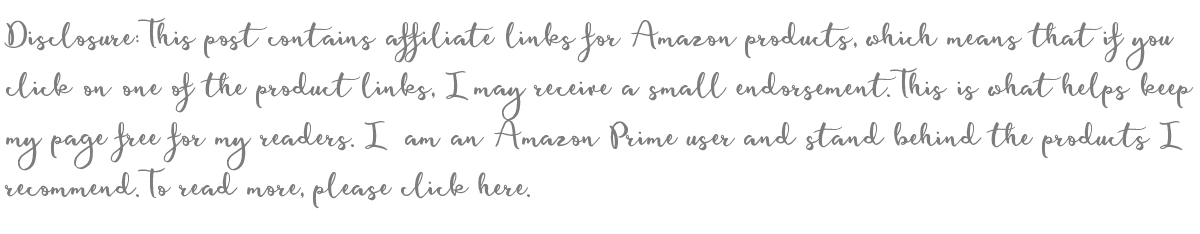 Disclosure: This post contains affiliate links for Amazon products, which means that if you
click on one of the product links, I may receive a small endorsement. This is what helps keep
my page free for my readers. I am an Amazon Prime user and stand behind the products I
recommend. To read more, please click here.